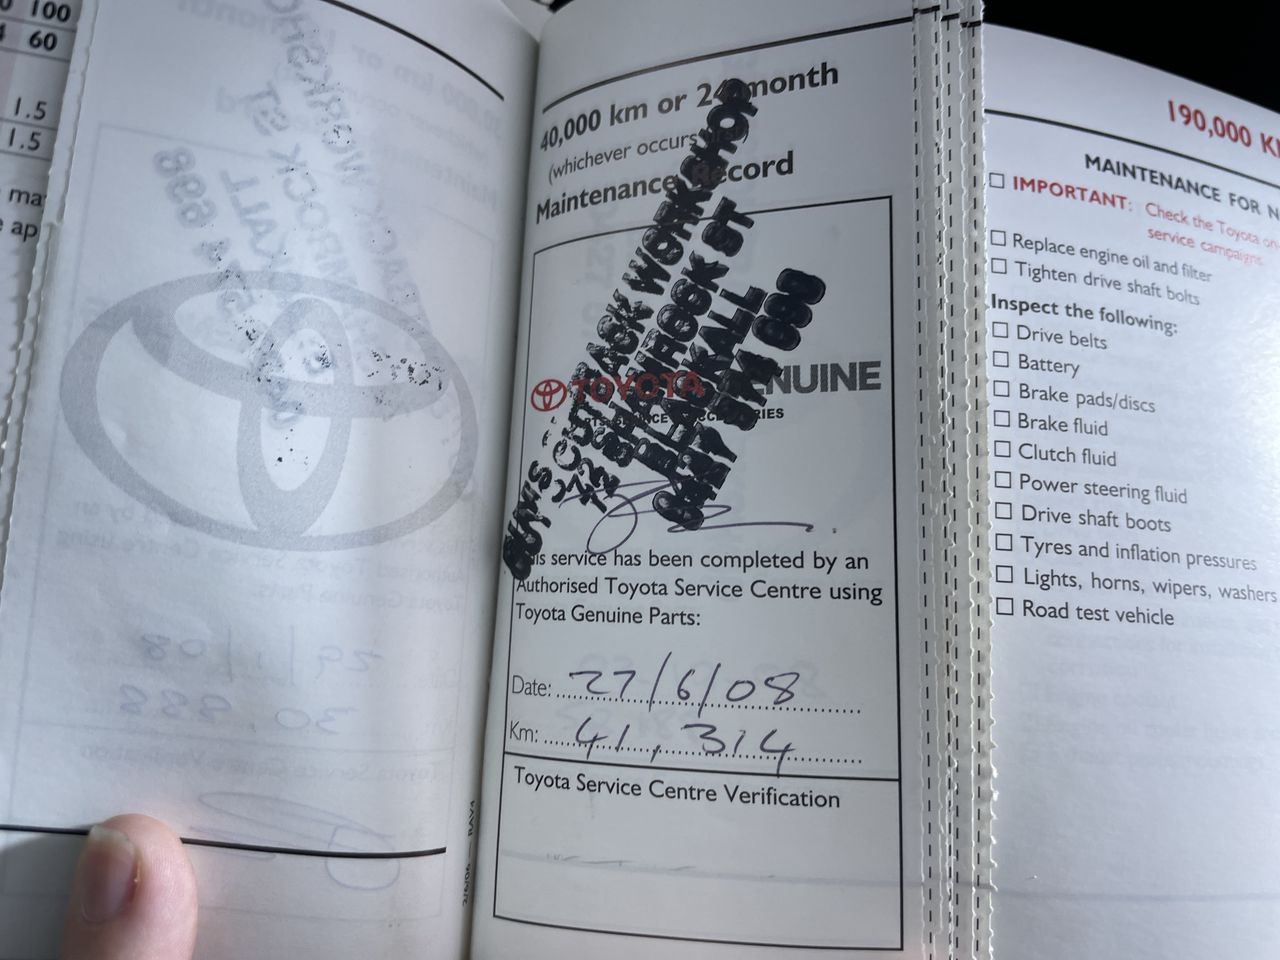 100
60
1.5
1.5
ma
ap
40,000 km or 24 month
(whichever occurs
Maintenance Record
WORKSHOP
ST
TOYOTA GENUINE
This service has been completed by an
Authorised Toyota Service Centre using
Toyota Genuine Parts:
Date: 27/6/08
Km: 41,314
Toyota Service Centre Verification
2/6/06 — RAV4
190,000 K
MAINTENANCE FOR N
IMPORTANT: Check the Toyota on
service campaigns
Replace engine oil and filter
Tighten drive shaft bolts
Inspect the following:
Drive belts
Battery
Brake pads/discs
Brake fluid
Clutch fluid
Power steering fluid
Drive shaft boots
Tyres and inflation pressures
Lights, horns, wipers, washers
Road test vehicle